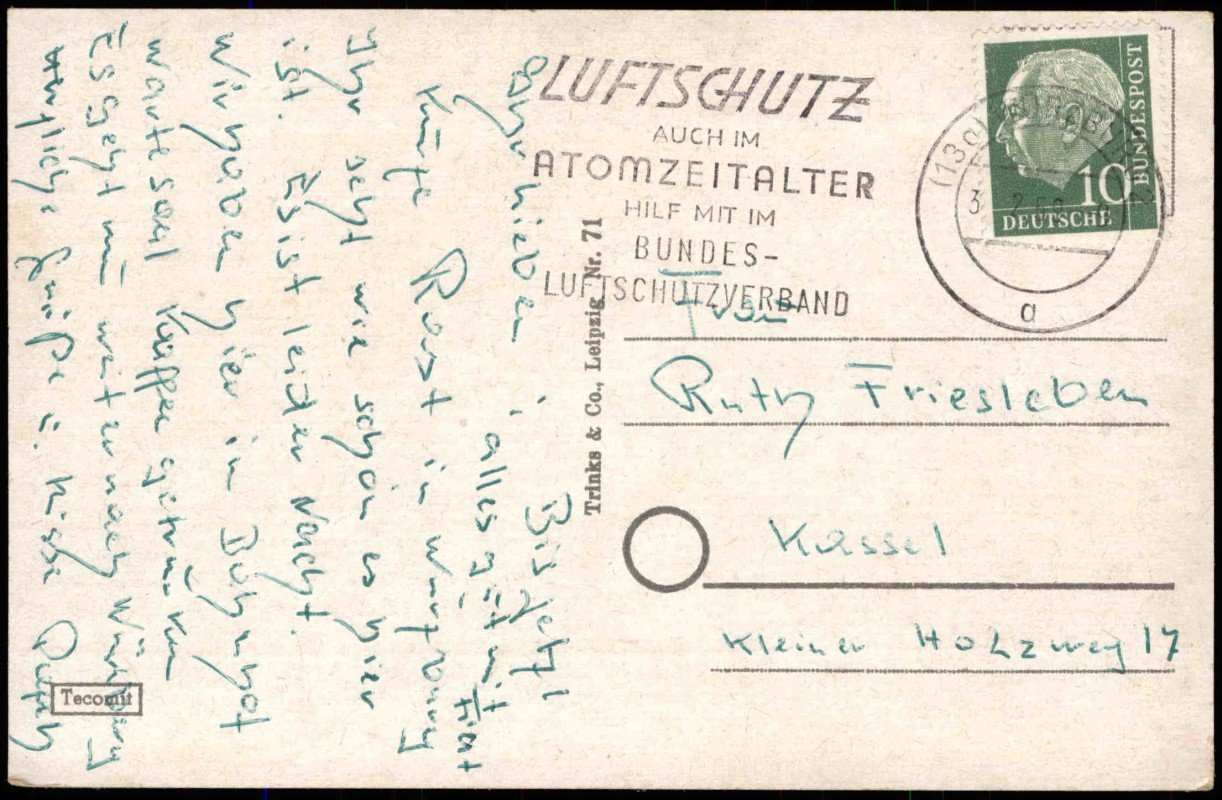 LUFTSCHUTZ
AUCH IM
ATOMZEITALTER
HILF MIT IM
BUNDES-
LUFTSCHUTZVERBAND
(13a) WÜRZBURG 2
a
10
DEUTSCHE
BUNDESPOST
Ihr Lieben! Bis jetzt
alles gut mit
kurze Rast in Würzburg
Ihr seht wie schön es hier
ist. Es ist leider Nacht.
Wir haben hier im Bahnhof
wartesaal Kaffee getrunken
Es geht nun weiter nach
herzliche Grüße u. Küsse
Trinks & Co., Leipzig, Nr. 71
Frau
Ruth Friesleben
Kassel
Kleiner Holzweg 17
Tecomit